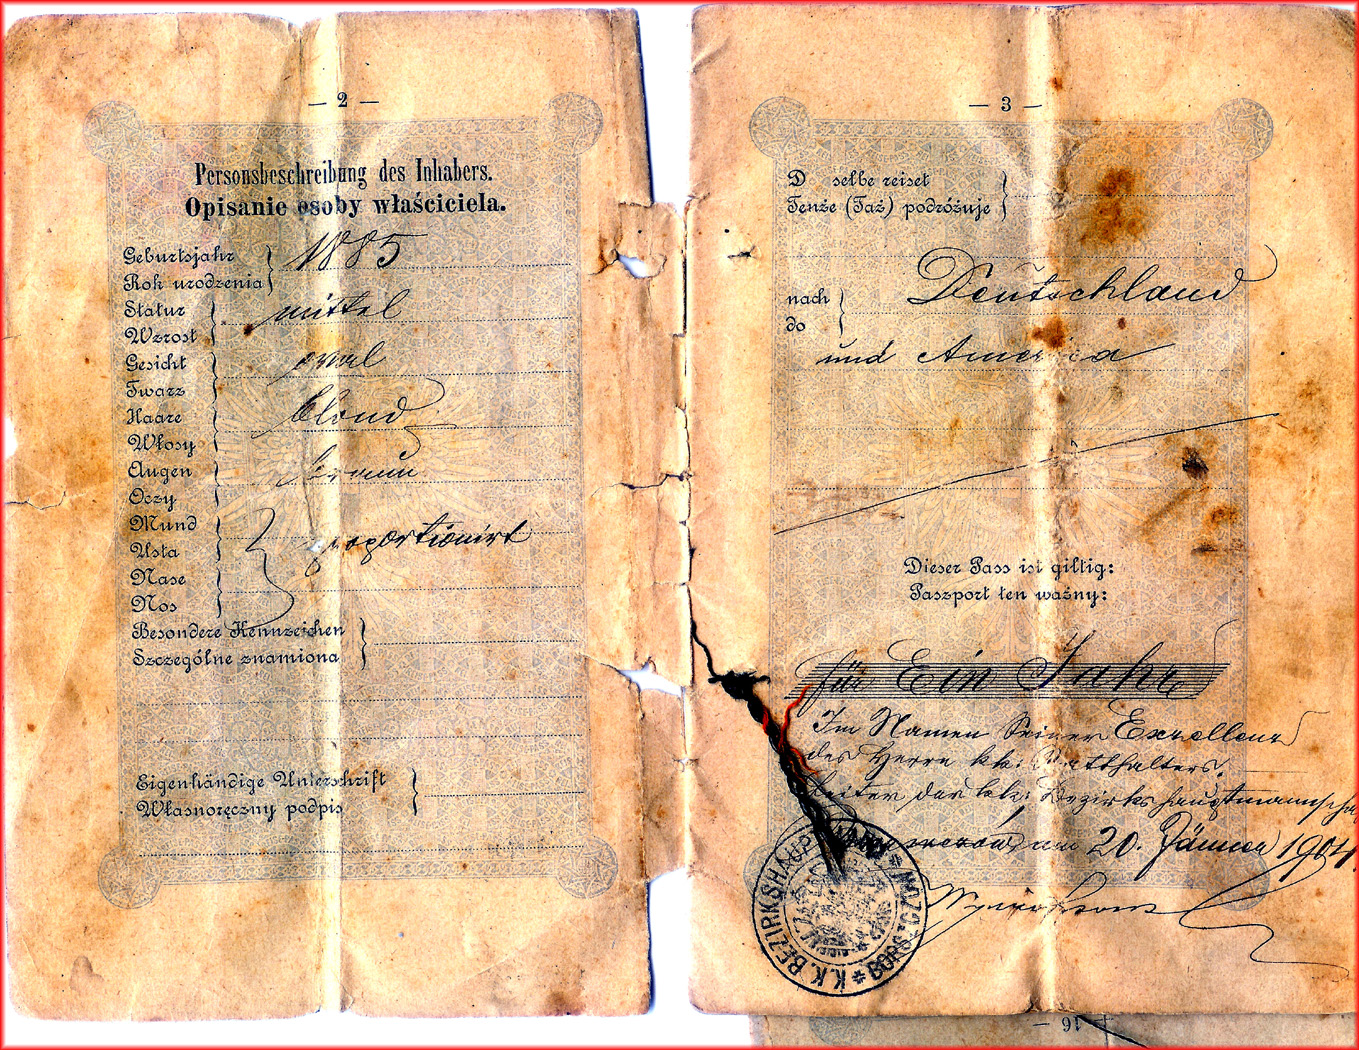 — 2 —
Personsbeschreibung des Inhabers.
Opisanie osoby właściciela.
Geburtsjahr
Rok urodzenia
1885
Statur
Wzrost
mittel
Gesicht
Twarz
oval
Haare
Włosy
blond
Augen
Oczy
braun
Mund
Usta
Nase
Nos
proportionirt
Besondere Kennzeichen
Szczególne znamiona
Eigenhändige Unterschrift
Własnoręczny podpis
— 3 —
D selbe reiset
Tenże (Taż) podróżuje
nach
do
Deutschland
und America
Dieser Pass ist giltig:
Paszport ten ważny:
für Ein Jahr
Im Namen Seiner Excellenz
des Herrn kk: Statthalters.
Leiter der kk: Bezirkshauptmannscha
am 20. Jänner 1904
K.K. BEZIRKSHAUP
BORSZ
— 16 —